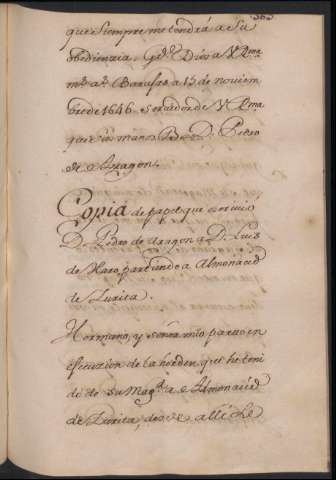 que siempre me tendrá a su
obediencia. Gde. Dios a V Rma.
ms. as. Barajas a 15 de noviem
bre de 1646. Servidor de V Rma
que sus manos B. D. Pedro
de Aragon.
Copia de papel que escrivió
D. Pedro de Aragon a D. Luis
de Haro, partiendo a Almonacid
de Zurita.
Hermano, y señor mio parto en
de la horden, que he teni
do de su Magd. a Almonacid
de Zurita, desde alli le